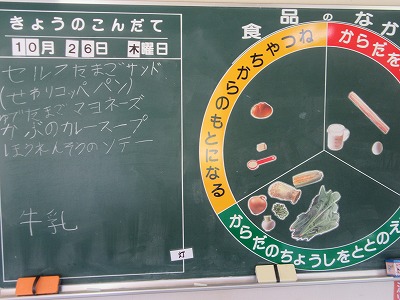 きょうのこんだて
10月26日 木曜日
セルフたまごサンド
(せわりコッペパン)
ゆでたまごマヨネーズ
かぶのカレースープ
ほうれんそうのソテー
牛乳
灯
食品のなか
からだを
ちからやねつのもとになる
からだのちょうしをととのえ